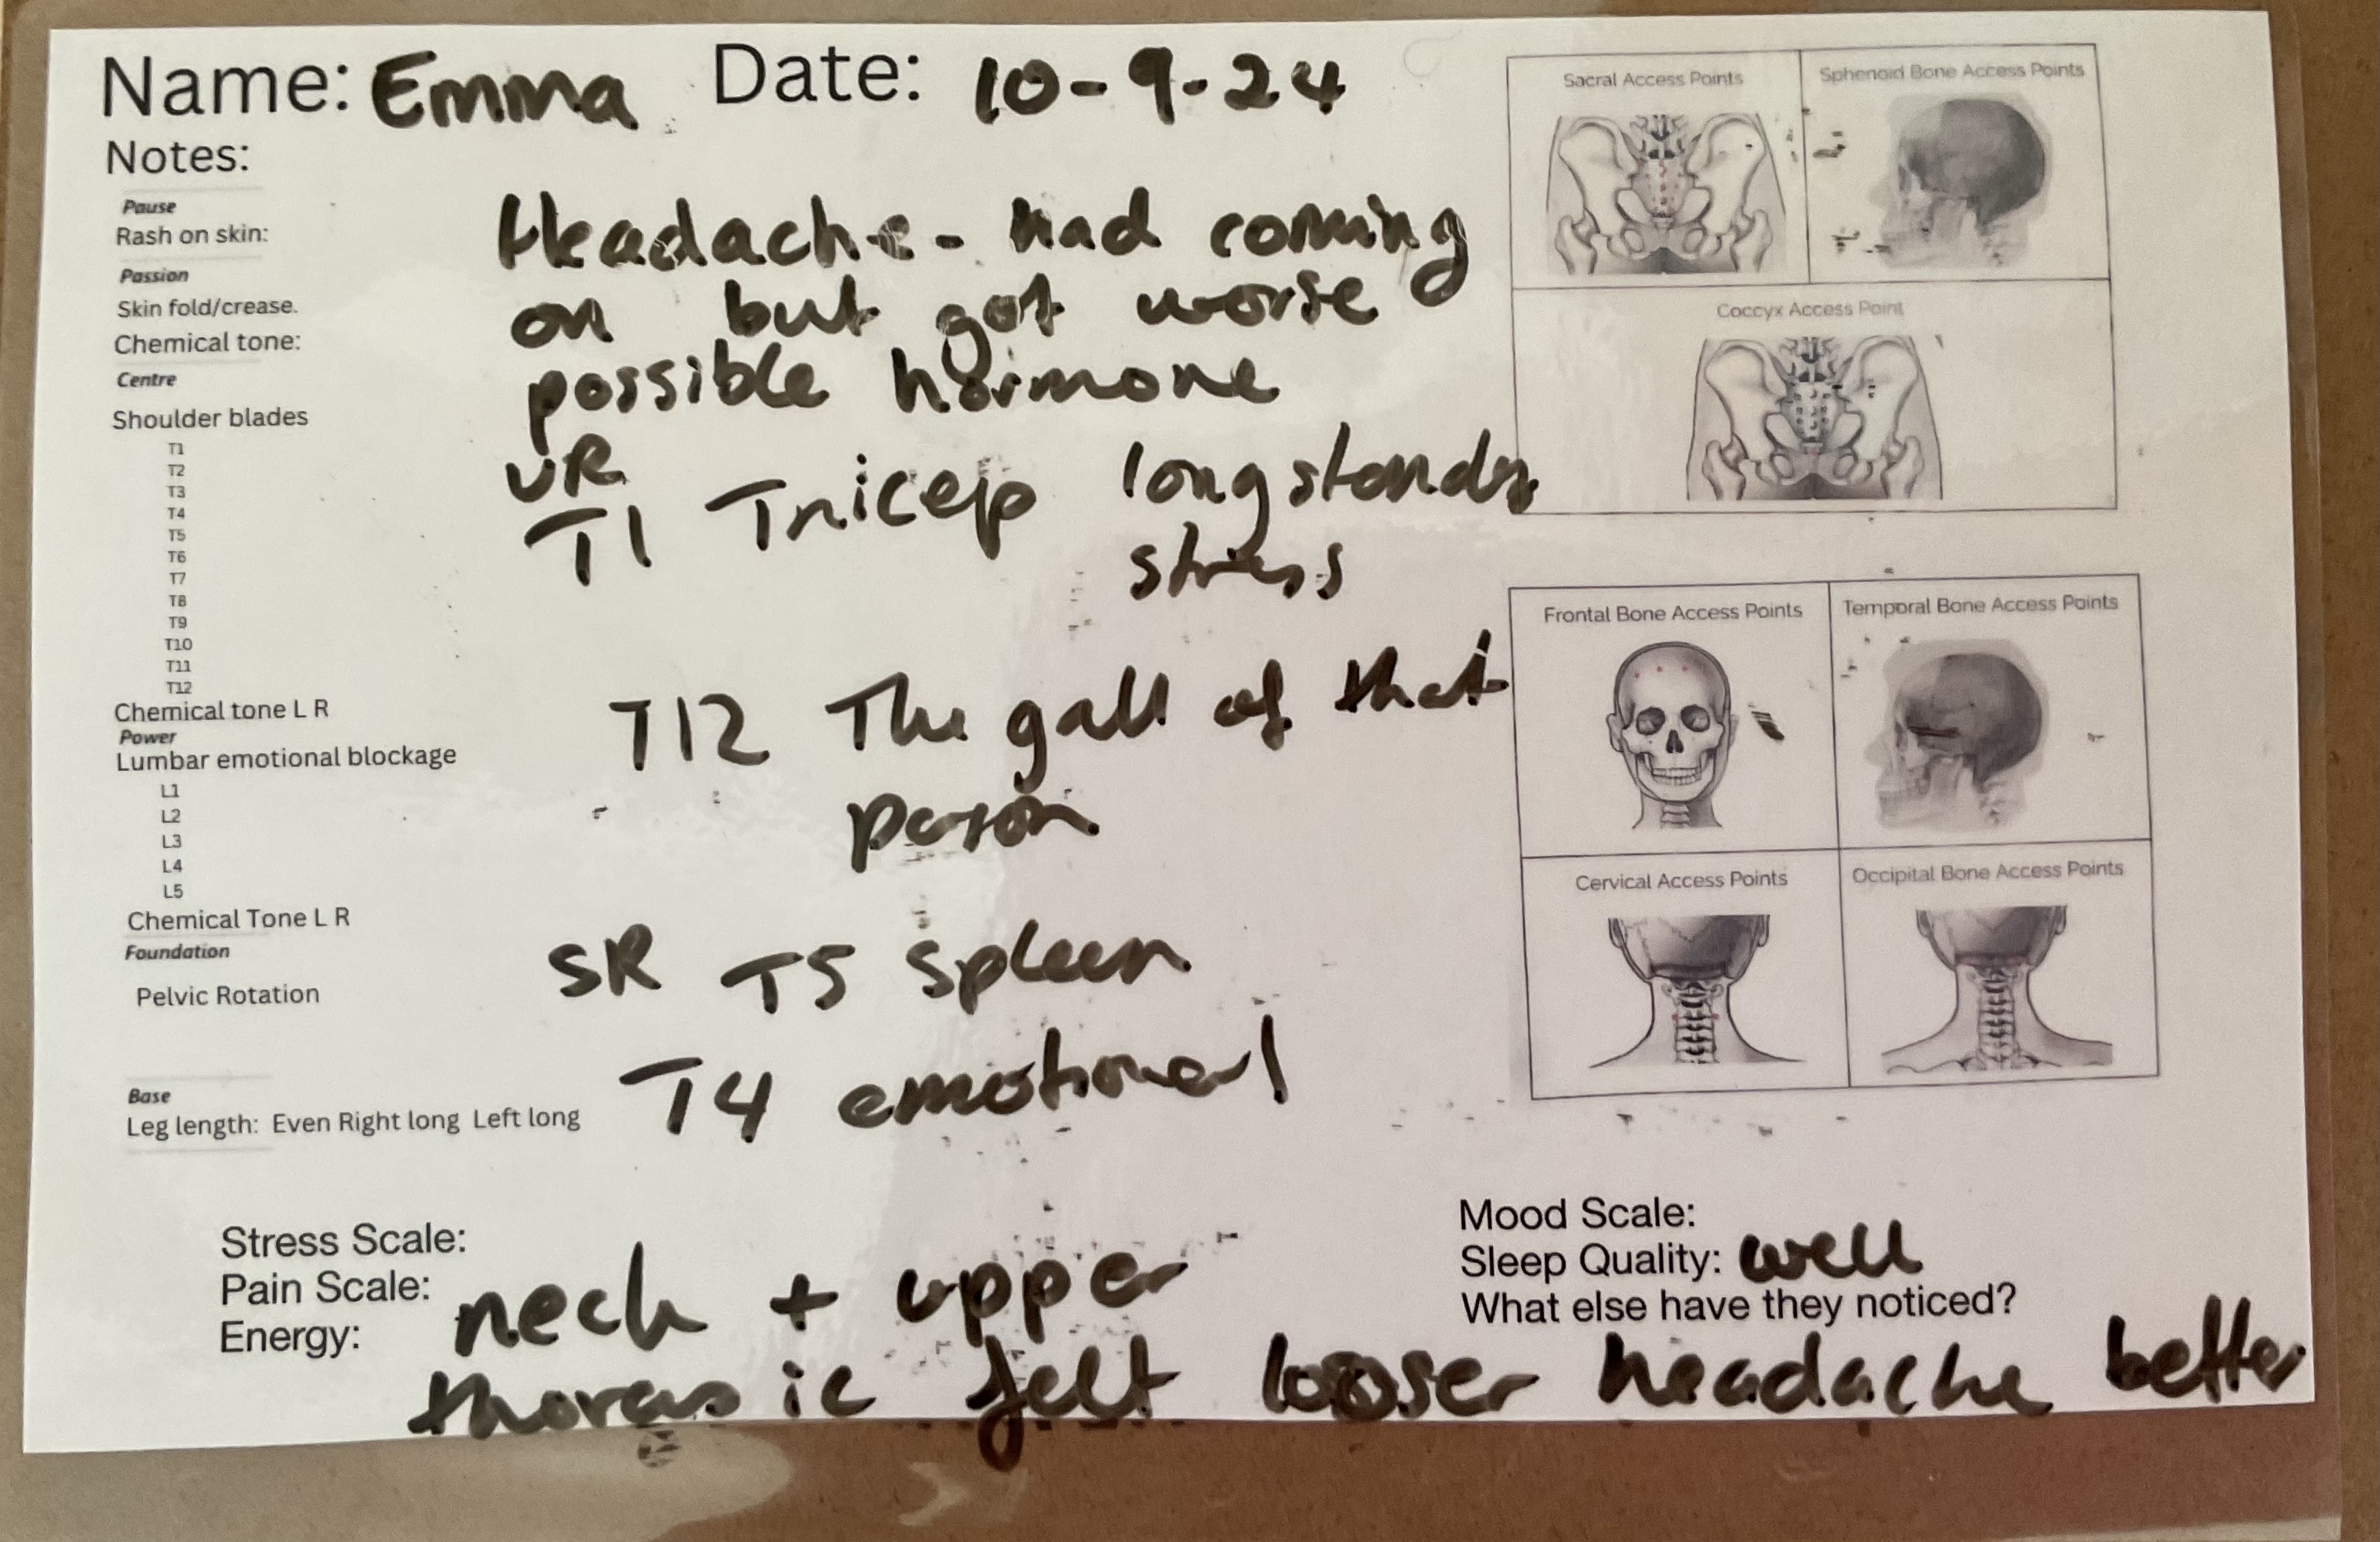 Name: Emma Date: 10-9-24
Notes:
Pause
Rash on skin:
Passion
Skin fold/crease.
Chemical tone:
Centre
Shoulder blades
T1
T2
T3
T4
T5
T6
T7
T8
T9
T10
T11
T12
Chemical tone L R
Power
Lumbar emotional blockage
L1
L2
L3
L4
L5
Chemical Tone L R
Foundation
Pelvic Rotation
Base
Leg length: Even Right long Left long
Headache - had coming
on but got worse
possible hormone
UR
T1 Tricep long
stress
T12 The gall of that
person
SR T5 Spleen
T4 emotional
Sacral Access Points
Sphenoid Bone Access Points
Coccyx Access Point
Frontal Bone Access Points
Temporal Bone Access Points
Cervical Access Points
Occipital Bone Access Points
Stress Scale:
Pain Scale:
Energy: neck + upper
thorasic felt looser headache better
Mood Scale:
Sleep Quality: well
What else have they noticed?